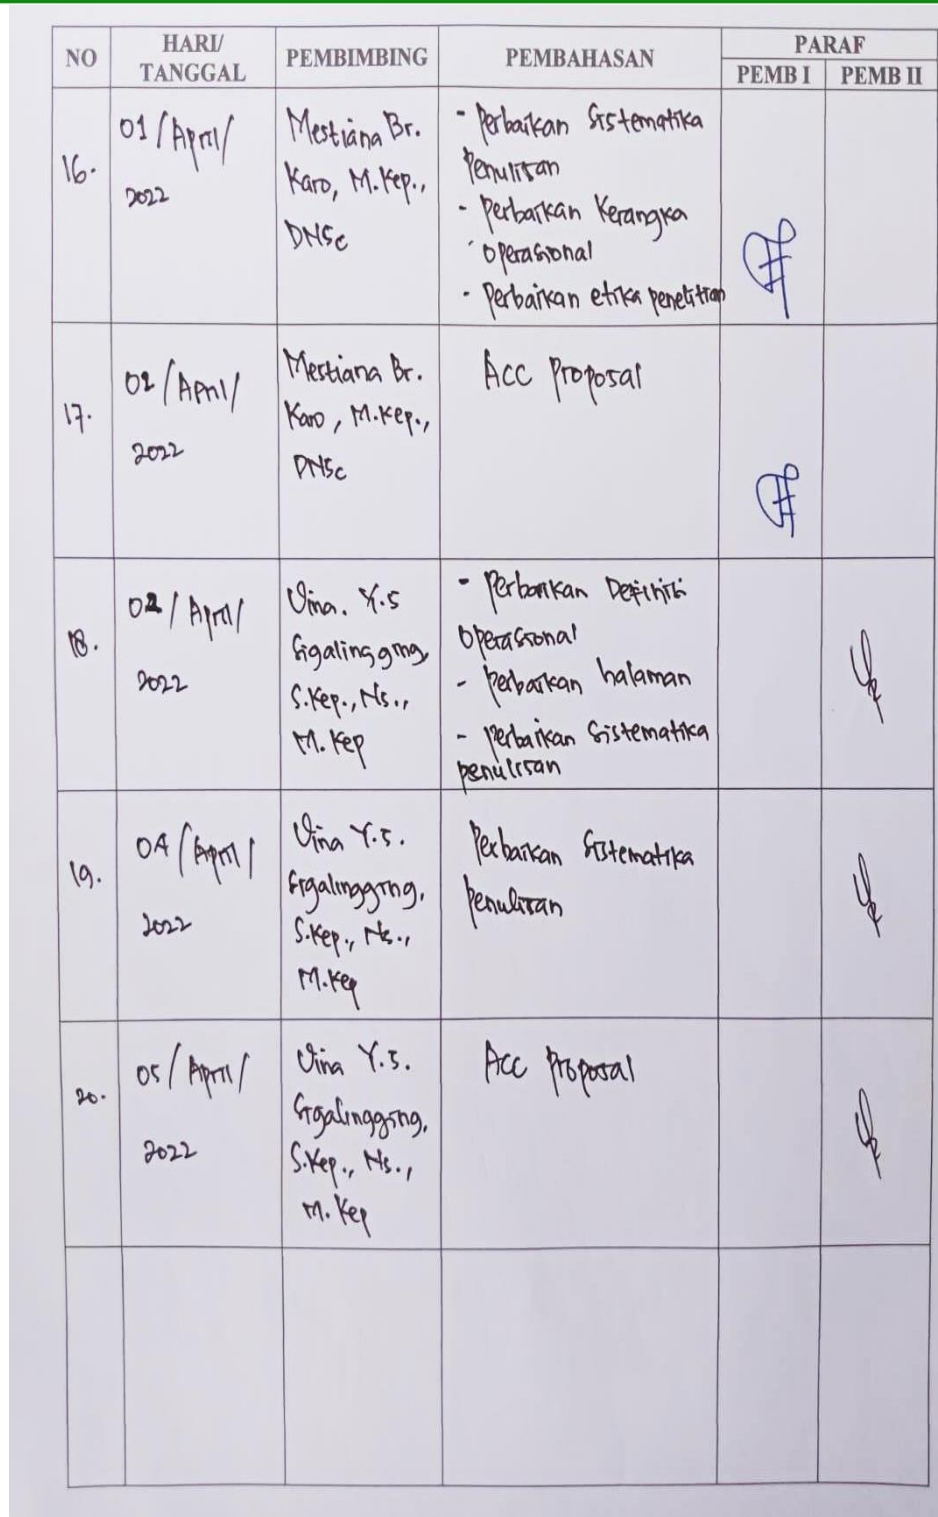 NO
HARI/
TANGGAL
PEMBIMBING
PEMBAHASAN
PARAF
PEMB I
PEMB II
16.
01/April/
2022
Mestiana Br.
Karo, M.Kep.,
DNSc
- Perbaikan Sistematika
Penulisan
- Perbaikan Kerangka
operasional
- Perbaikan etika penelitian
17.
02/April/
2022
Mestiana Br.
Karo, M.Kep.,
DNSc
Acc Proposal
18.
02/April/
2022
Vina. Y.S
Sigalingging,
S.Kep., Ns.,
M.Kep
- Perbaikan Definisi
Operasional
- Perbaikan halaman
- Perbaikan Sistematika
penulisan
19.
04/April/
2022
Vina Y.S.
Sigalingging,
S.Kep., Ns.,
M.Kep
Perbaikan Sistematika
Penulisan
20.
05/April/
2022
Vina Y.S.
Sigalingging,
S.Kep., Ns.,
M.Kep
Acc Proposal